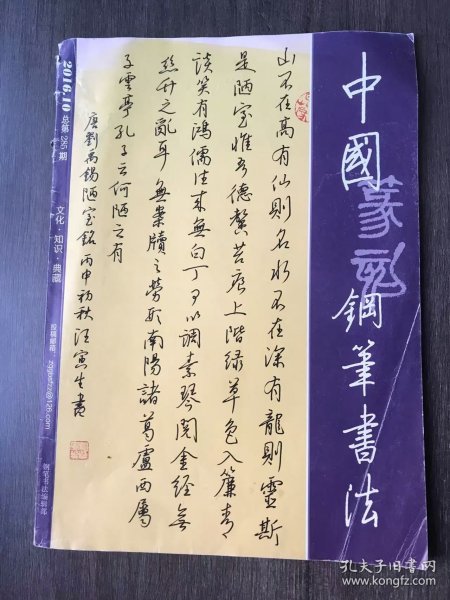 中國鋼筆書法
篆刻
山不在高有仙則名水不在深有龍則靈斯
是陋室惟吾德馨苔痕上階綠草色入簾青
談笑有鴻儒往來無白丁可以調素琴閱金經無
絲竹之亂耳無案牘之勞形南陽諸葛廬西蜀
子雲亭孔子云何陋之有
唐劉禹錫陋室銘丙申初秋汪寅生書
2016.10 总第 期
文化·知识·典藏
投稿邮箱:
钢笔书法编辑部
孔夫子旧书网
www.kongfz.com